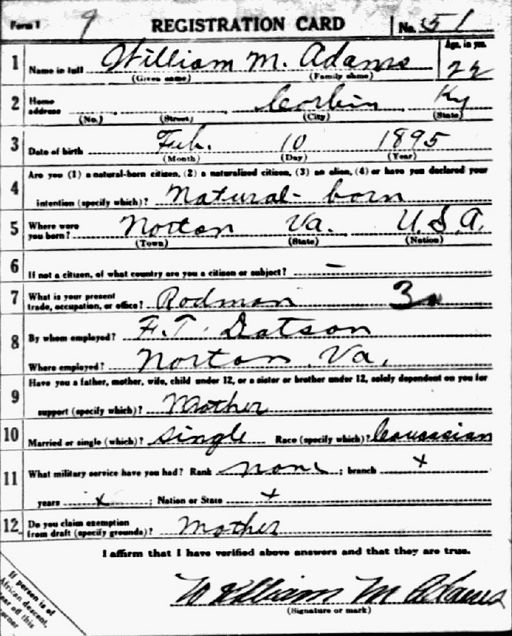 Form 1 9 REGISTRATION CARD No. 51
1 Name in full William M. Adams Age, in yrs. 22
(Given name) (Family name)
2 Home address Corbin Ky
(No.) (Street) (City) (State)
3 Date of birth Feb. 10 1895
(Month) (Day) (Year)
4 Are you (1) a natural-born citizen, (2) a naturalized citizen, (3) an alien, (4) or have you declared your
intention (specify which)? Natural-born
5 Where were you born? Norton Va. U.S.A.
(Town) (State) (Nation)
6 If not a citizen, of what country are you a citizen or subject? —
7 What is your present trade, occupation, or office? Rodman 3
8 By whom employed? F.T. Datson
Where employed? Norton, Va.
9 Have you a father, mother, wife, child under 12, or a sister or brother under 12, solely dependent on you for
support (specify which)? Mother
10 Married or single (which)? Single Race (specify which)? Caucasian
11 What military service have you had? Rank none ; branch x
years x ; Nation or State x
12 Do you claim exemption from draft (specify grounds)? Mother
I affirm that I have verified above answers and that they are true.
William M Adams
(Signature or mark)
If person is of
African descent,
tear off this
corner